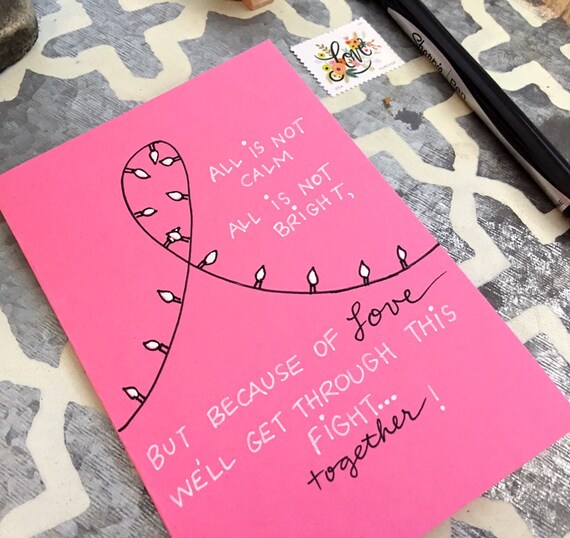 Love
Sharpie PEN
ALL iS NOT
CALM
ALL iS NOT
BRiGHT,
BUT BECAUSE OF Love
WE'LL GET THROUGH THiS
FiGHT...
together!